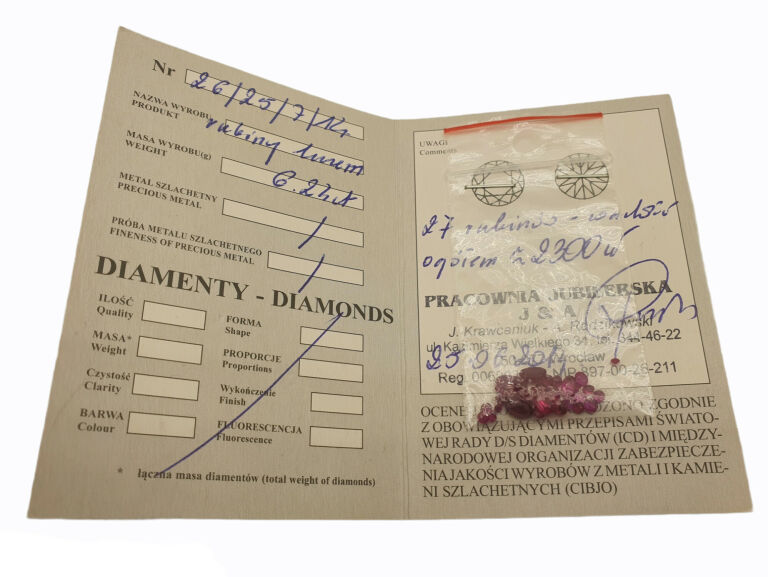 Nr 26/25/7/14
NAZWA WYROBU
PRODUKT
rubiny luzem
MASA WYROBU(g)
WEIGHT
6.27ct
METAL SZLACHETNY
PRECIOUS METAL
/
PRÓBA METALU SZLACHETNEGO
FINENESS OF PRECIOUS METAL
/
DIAMENTY - DIAMONDS
ILOŚĆ
Quality
MASA*
Weight
Czystość
Clarity
BARWA
Colour
FORMA
Shape
PROPORCJE
Proportions
Wykończenie
Finish
FLUORESCENCJA
Fluorescence
* łączna masa diamentów (total weight of diamonds)
UWAGI
Comments
27 rubinów - wartość
ogółem
PRACOWNIA JUBILERSKA
J & A
J. Krawcaniuk - A. Radzikowski
ul. Kazimierza Wielkiego 34, tel. 344-46-22
Wrocław
Reg. 897-00-26-211
OCENĘ ZGODNIE
Z OBOWIĄZUJĄCYMI PRZEPISAMI ŚWIATO-
WEJ RADY D/S DIAMENTÓW (ICD) I MIĘDZY-
NARODOWEJ ORGANIZACJI ZABEZPIECZE-
NIA JAKOŚCI WYROBÓW Z METALI I KAMIE-
NI SZLACHETNYCH (CIBJO)